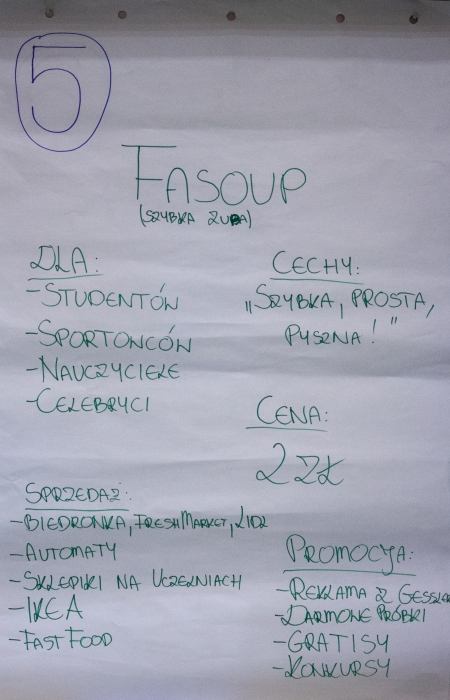 5
FASOUP
(SZYBKA ZUPA)
DLA:
-STUDENTÓW
-SPORTOWCÓW
-NAUCZYCIELE
-CELEBRYCI
CECHY:
„SZYBKA, PROSTA,
PYSZNA!"
CENA:
2 ZŁ
SPRZEDAŻ:
-BIEDRONKA, FRESHMARKET, LIDL
-AUTOMATY
-SKLEPIKI NA UCZELNIACH
-IKEA
-FAST FOOD
PROMOCJA:
-REKLAMA Z
-DARMOWE PRÓBKI
-GRATISY
-KONKURSY